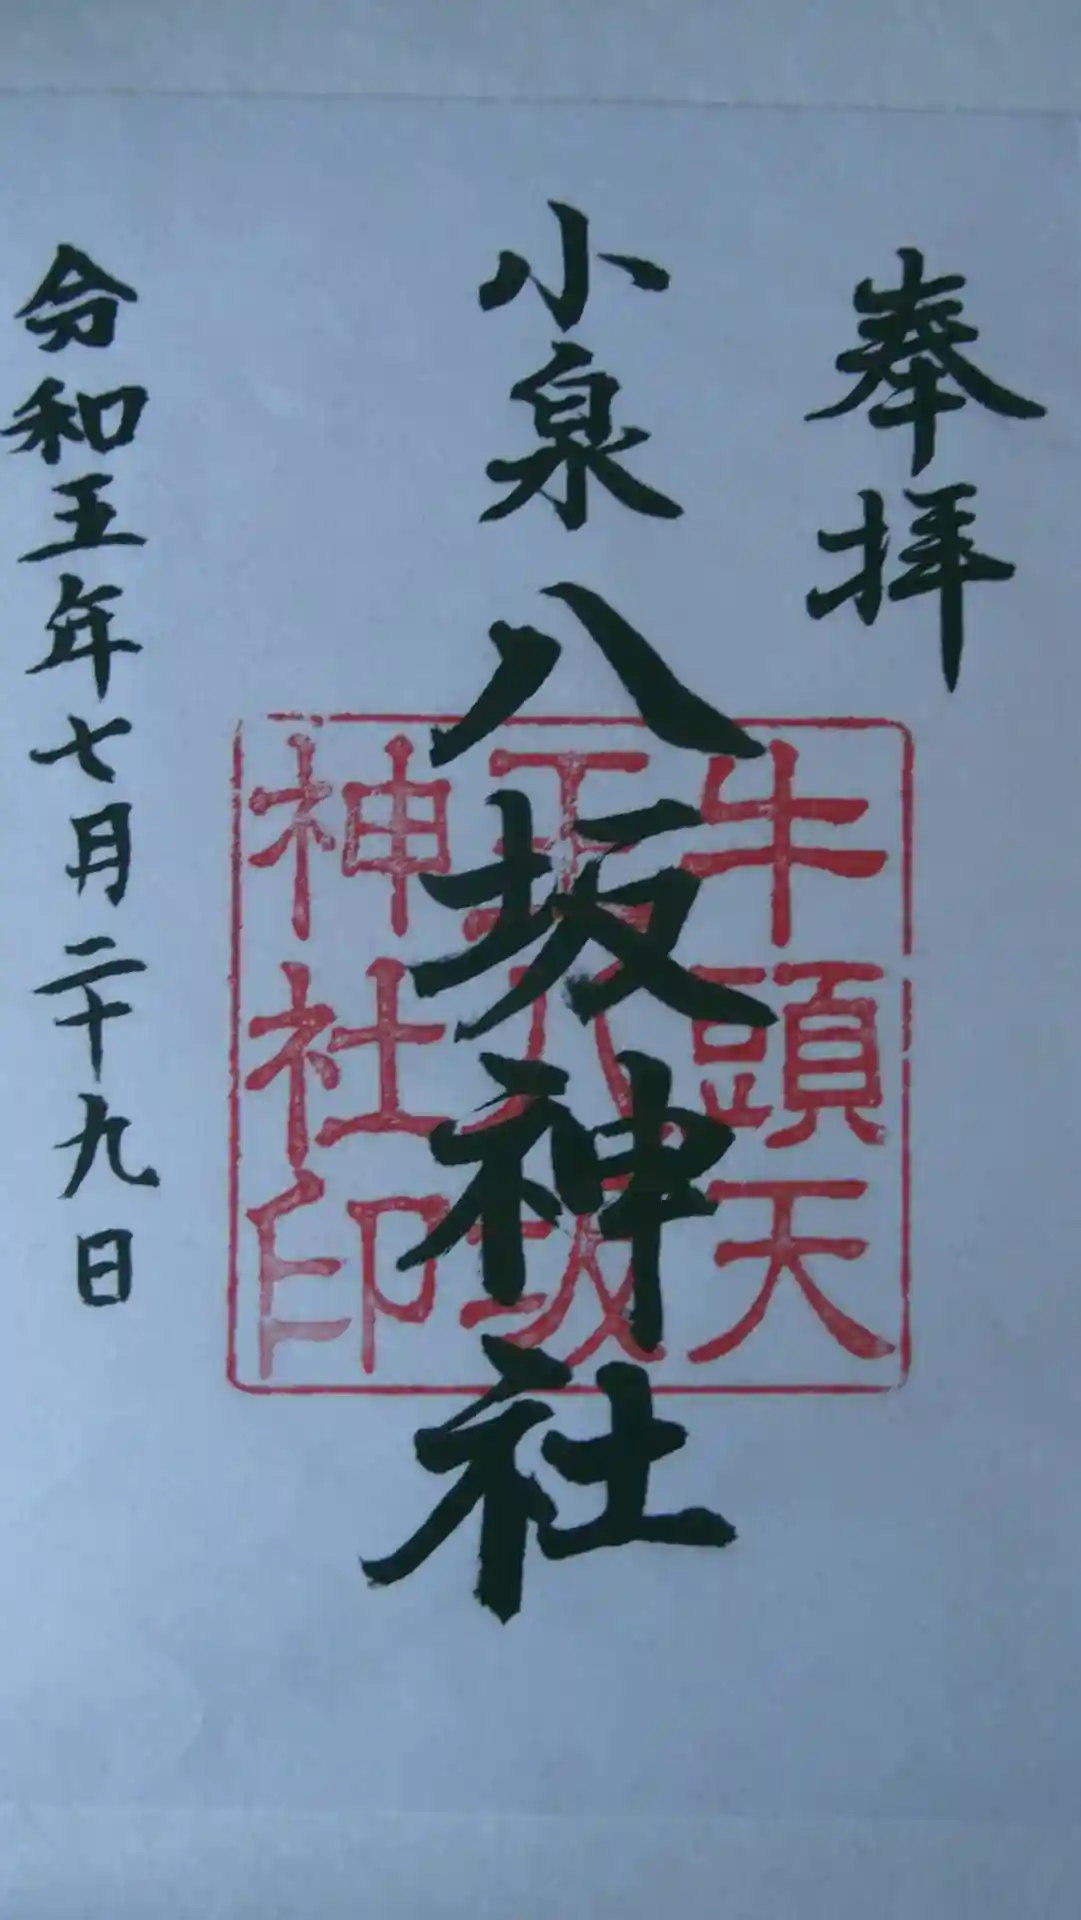 奉拝
小泉八坂神社
牛頭天
王八坂
神社印
令和五年七月二十九日